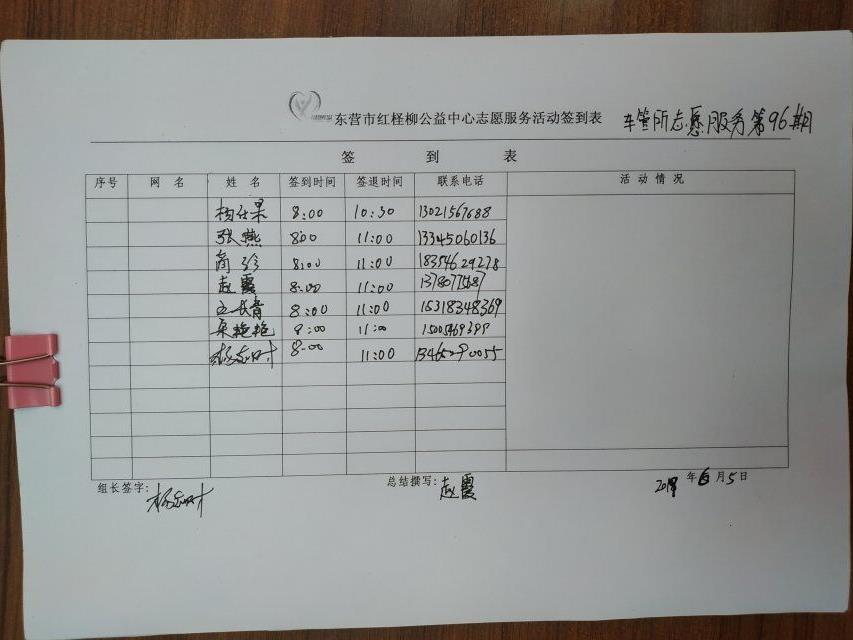 东营市红柽柳公益中心志愿服务活动签到表 车管所志愿服务第96期
签到表
序号 网名 姓名 签到时间 签退时间 联系电话 活动情况
8:00 10:30 13021567688
张燕 8:00 11:00 13345060136
商珍 8:00 11:00 18354629278
赵霞 8:00 11:00
王长青 8:00 11:00 15318348369
宋艳艳 8:00 11:00
8:00 11:00
组长签字: 总结撰写:赵霞 年6月5日